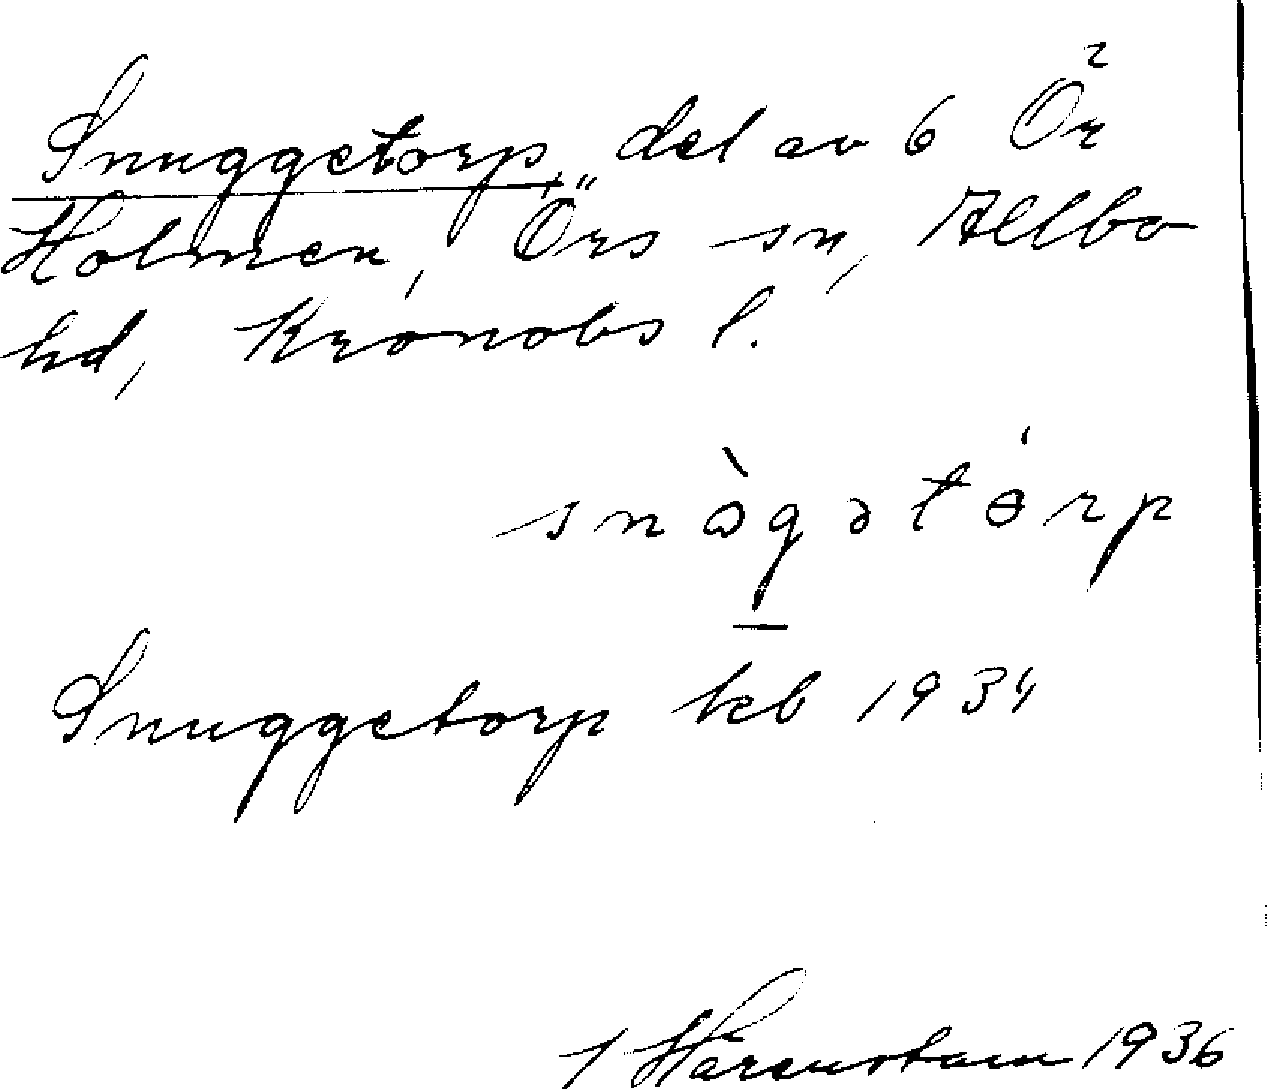 Snuggetorp, del av 6 Ör
Holmen, Örs sn, Allbo
hd, Kronobs l.
snògətórp
Snuggetorp kb 1934
1936